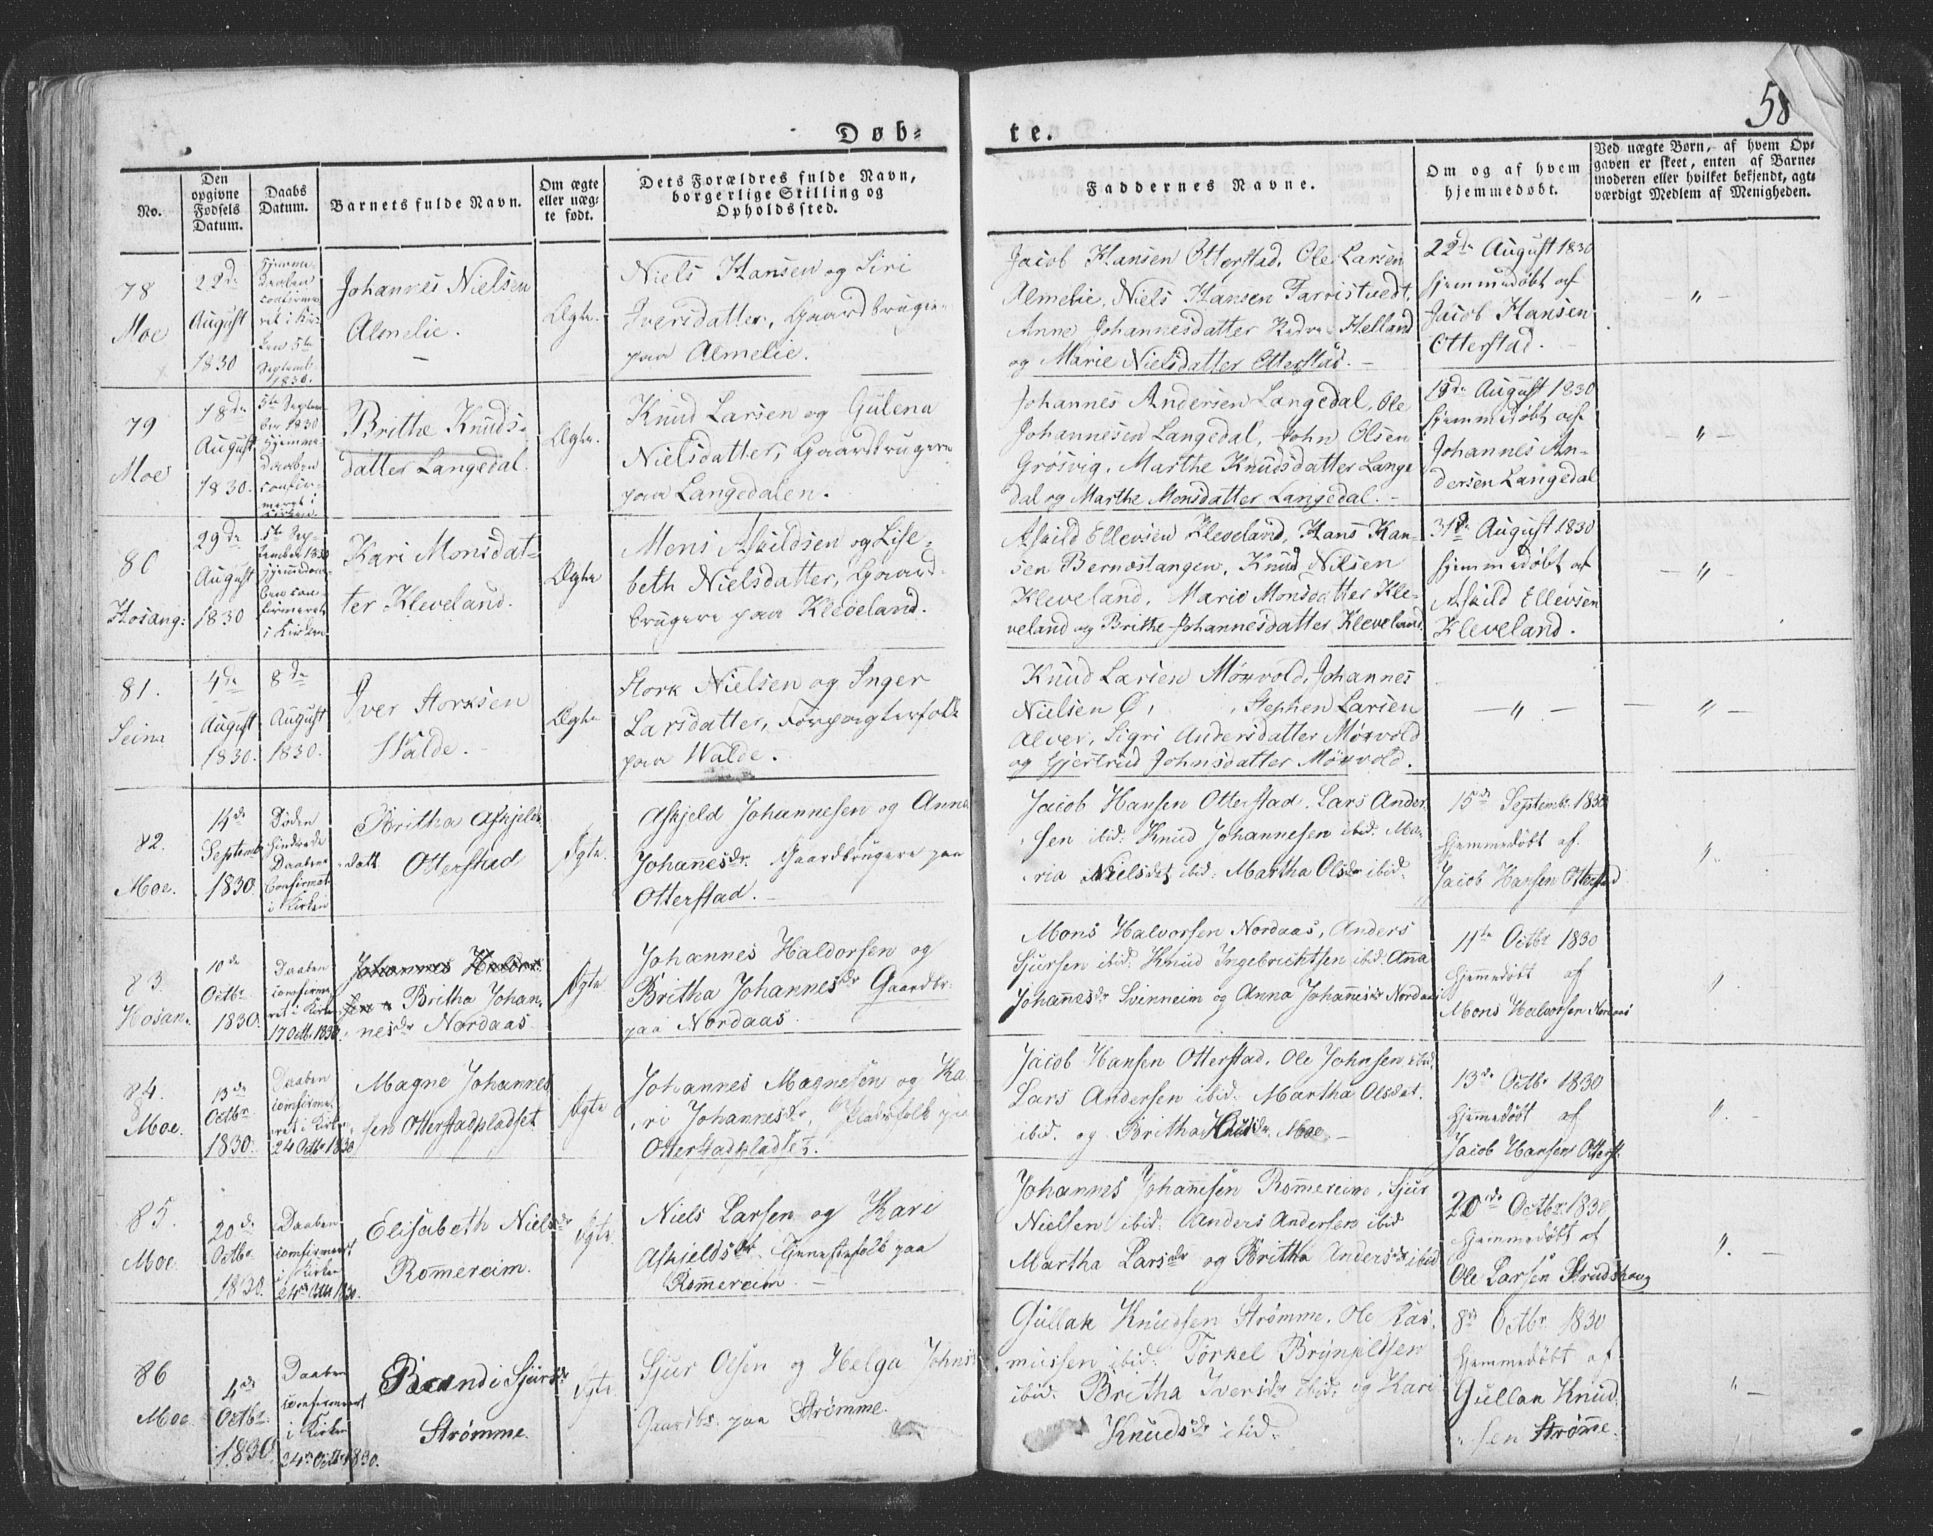 58
Døb-
te.
No.
Den
opgivne
Fødsels
Datum.
Daabs
Datum.
Barnets fulde Navn.
Om ægte
eller uæg-
te født.
Dets Forældres fulde Navn,
borgerlige Stilling og
Opholdssted.
Faddernes Navne.
Om og af hvem
hjemmedøbt.
Ved uægte Børn, af hvem Op-
gaven er skeet, enten af Barne-
moderen eller hvilket bekjendt, agt-
værdigt Medlem af Menigheden.
78
Moe
22de
August
1830
Hjemme-
daaben
confirme-
ret i Kir
den 5te
Septemb.
1830.
Johannes Nielsen
Almelie.
Ægte.
Niels Hansen og Siri
Iversdatter, Gaardbrugere
paa Almelie.
Jacob Hansen Otterstad, Ole Larsen
Almelie, Niels Hansen Farristvedt,
Anne Johannesdatter Helland
og Marie Nielsdatter Otterstad.
22de August 1830
hjemmedøbt af
Jacob Hansen
Otterstad.
- " -
79
Moe
18de
August
1830.
5te Septem-
ber 1830
hjemme-
daaben
confir-
meret i
Kirken.
Brithe Knuds-
datter Langedal.
Ægte.
Knud Larsen og Gulena
Nielsdatter, Gaardbrugere
paa Langedalen.
Johannes Andersen Langedal, Ole
Johannesen Langedal, John Olsen
Grøsvig, Marthe Knudsdatter Lange
dal og Marthe Monsdatter Langedal.
18de August 1830
hjemmedøbt af
Johannes An-
dersen Langedal
- " -
80
Hosang:
29de
August
1830
5te Sep-
tember 1830
hjemmedaa-
ben con-
firmeret
i Kirken
Kari Monsdat-
ter Kleveland.
Ægte
Mons Askildsen og Lise-
beth Nielsdatter, Gaard-
brugere paa Kleveland.
Askild Ellevsen Kleveland, Hans Han-
sen Bernestangen, Knud Nilsen
Kleveland, Marie Monsdatter Kle-
veland og Brithe Johannesdatter Kleveland.
31te August 1830
hjemmedøbt af
Askild Ellevsen
Kleveland.
- " -
81.
Seim
4de
August
1830.
8de
August
1830.
Iver Storksen
Walde.
Ægte
Stork Nielsen og Inger
Larsdatter, Forpagterfolk
paa Walde.
Knud Larsen Mørvold, Johannes
Nielsen Ø, Stephen Larsen
Alver, Sigri Andersdatter Mørvold
og Gjertrud Johnsdatter Mørvold.
- " -
- " -
82.
Moe.
14de
Septembr
1830.
Døden
hindrede
Daabens
Confirmat
i Kirken
Britha Askjelds
datt. Otterstad
Ægte.
Askjeld Johannesen og Anna
Johanesdr. Gaardbrugere paa
Otterstad.
Jacob Hansen Otterstad. Lars Ander
sen ibid: Knud Johannesen ibid. Ma-
ria Nielsdtt ibid: Martha Olsdr ibid.
15de Septembr 1830
hjemmedøbt af
Jacob Hansen Otterstad
"
83.
Hosan.
10de
Octbr
1830.
Daaben
confirme-
ret i Kirken
17 Octbr 1830.
Johannes Haldor-
sen Britha Johan-
nesdr Nordaas
Ægte
Johannes Haldorsen og
Britha Johannesdr Gaardbr.
paa Nordaas
Mons Halvorsen Nordaas, Anders
Sjursen ibid: Knud Ingebrichtsen ibid: Anna
Johannesdr Svinneim og Anna Johannesdr Nordaas
11te Octbr 1830
hjemmedøbt af
Mons Halvorsen Nordaas
"
84.
Moe.
13de
Octbr
1830.
Daaben
confirme-
ret i Kirken
24 Octbr 1830
Magne Johannes
sen Otterstadpladset
Ægte
Johannes Magnesen og Ka-
ri Johannesdr, Pladsfolk paa
Otterstadpladset.
Jacob Hansen Otterstad. Ole Johnsen ibid.
Lars Andersen ibid. Martha Olsdat.
ibid. og Britha Moe
13de Octbr 1830
hjemmedøbt af
Jacob Hansen Otterst.
"
85.
Moe.
20de
Octbr
1830.
Daaben
confirmeret
i Kirken
24de Octbr 1830.
Elisabeth Nielsdr
Romereim.
Ægte.
Niels Larsen og Kari
Askjeldsdr. Tjenestefolk paa
Romereim.
Johannes Johannesen Romereim, Sjur
Nielsen ibid: Anders Andersen ibid
Martha Larsdr og Britha Andersdr ibid
20de Octbr 1830
hjemmedøbt af
Ole Larsen Strudshoug
"
86
Moe
4de
Octbr.
1830.
Daaben
confirmeret
i Kirken
24de Octbr 1830.
Brandi Sjursdr
Strømme.
Ægte
Sjur Olsen og Helga Johns
Gaardbr. paa Strømme.
Gullak Knudsen Strømme. Ole Ras-
mussen ibid: Torkel Brynjeldsen
ibid: Britha Iversdr ibid. og Kari
Knudsdr ibid.
8de Octbr 1830
hjemmedøbt af
Gullak Knud-
sen Strømme.
" -